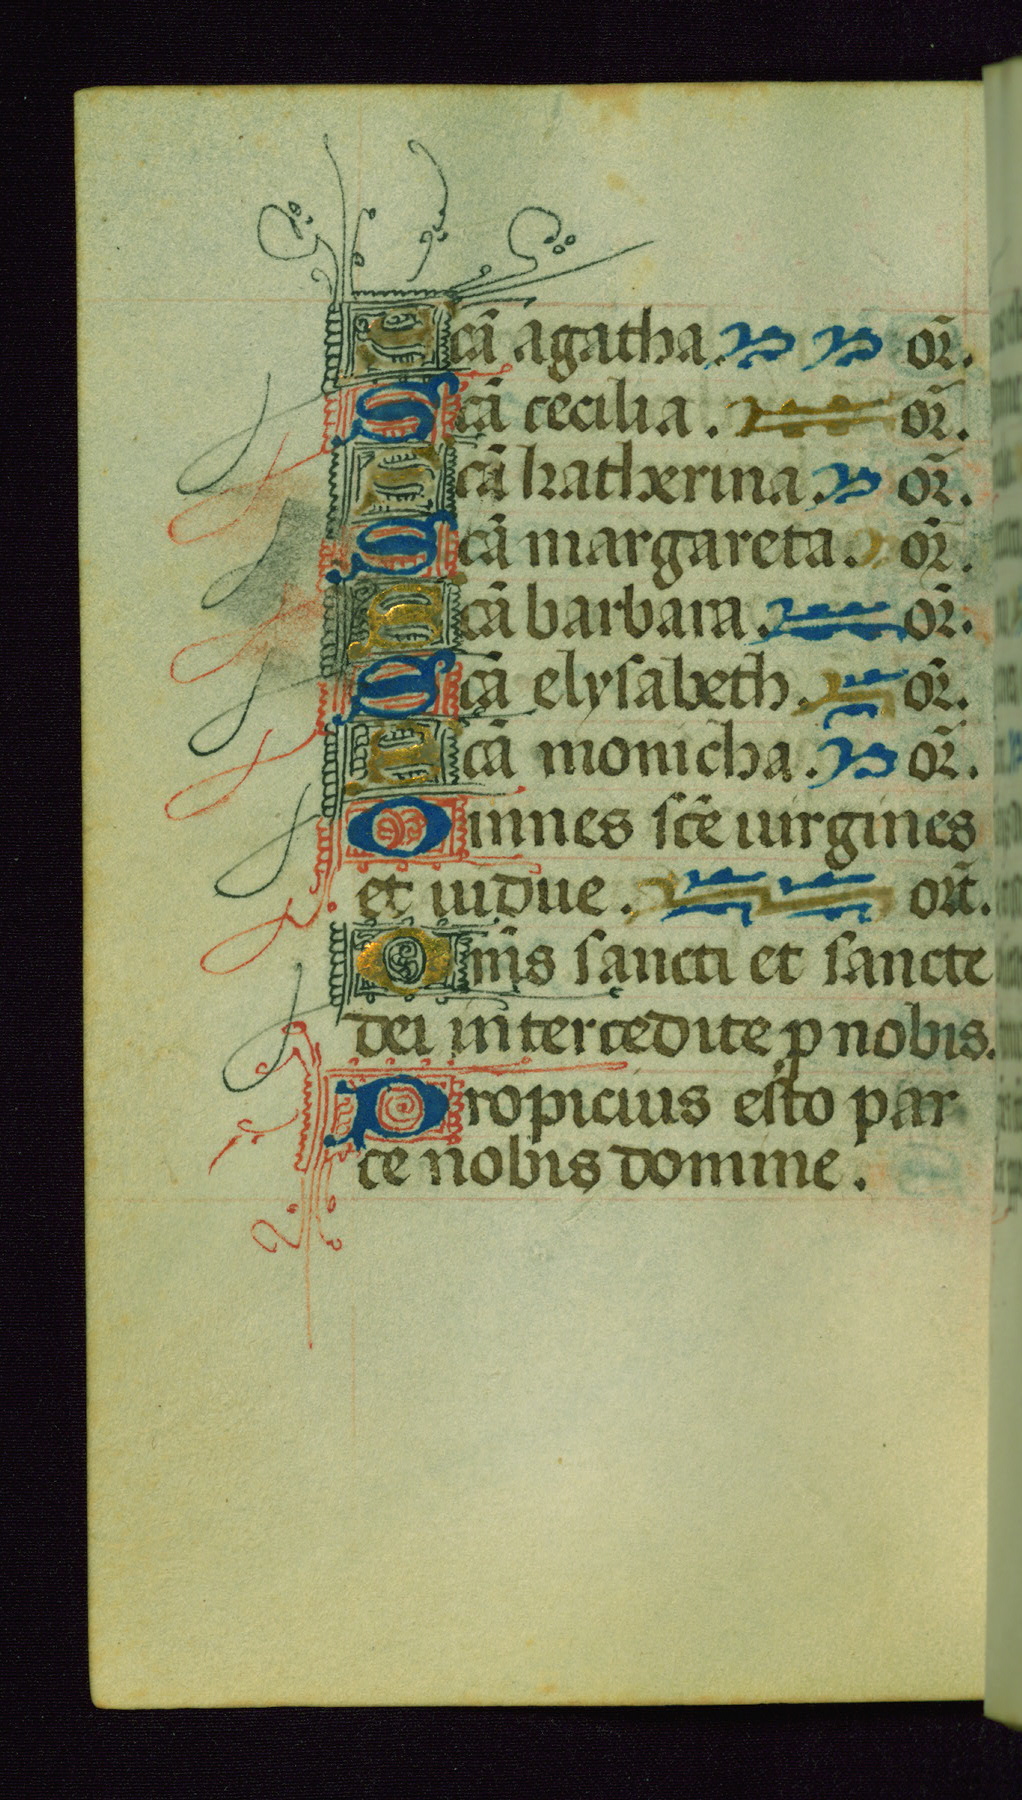 Scã agatha. or̃.
Scã cecilia. or̃.
Scã katherina. or̃.
Scã margareta. or̃.
Scã barbara. or̃.
Scã elysabeth. or̃.
Scã monicha. or̃.
Omnes sc̃e uirgines
et uidue. orãt.
Om̃s sancti et sancte
dei intercedite p nobis.
Propicius esto par
ce nobis domine.